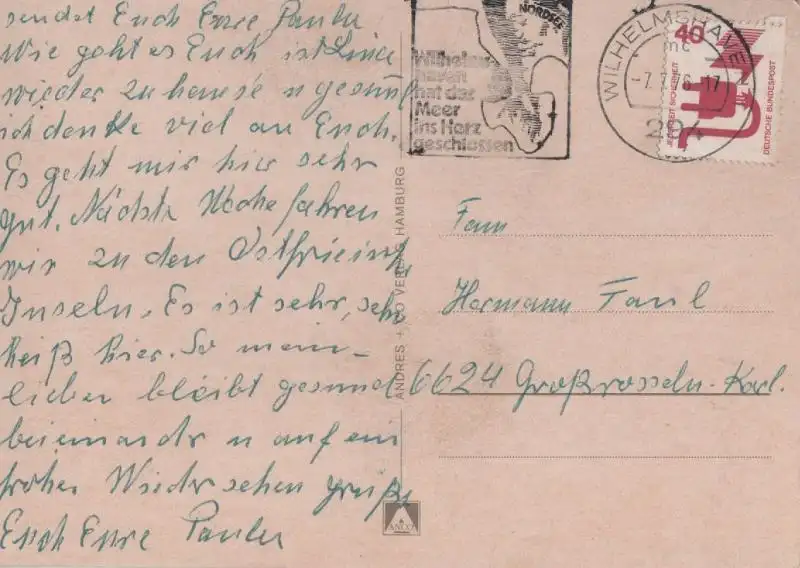 sendet Euch Eure Paula
Wie geht es Euch ist Lina
wieder zuhause u gesund
ich denke viel an Euch.
Es geht mir hier sehr
gut. Nächste Woche fahren
wir zu den Ostfriesisch
Inseln. Es ist sehr, sehr
heiß hier. So mein
lieber bleibt gesund
beieinander u auf ein
frohes Wiedersehen grüßt
Euch Eure Paula
NORDSEE
Wilhelms-
haven
hat das
Meer
ins Herz
geschlossen
WILHELMSHAVEN
mc
-7.7.76-17
294
40
JEDERZEIT SICHERHEIT
DEUTSCHE BUNDESPOST
ANDRES + CO VERLAG HAMBURG
Fam
Hermann Faul
6624 Großrosseln-Karl.
ANCO